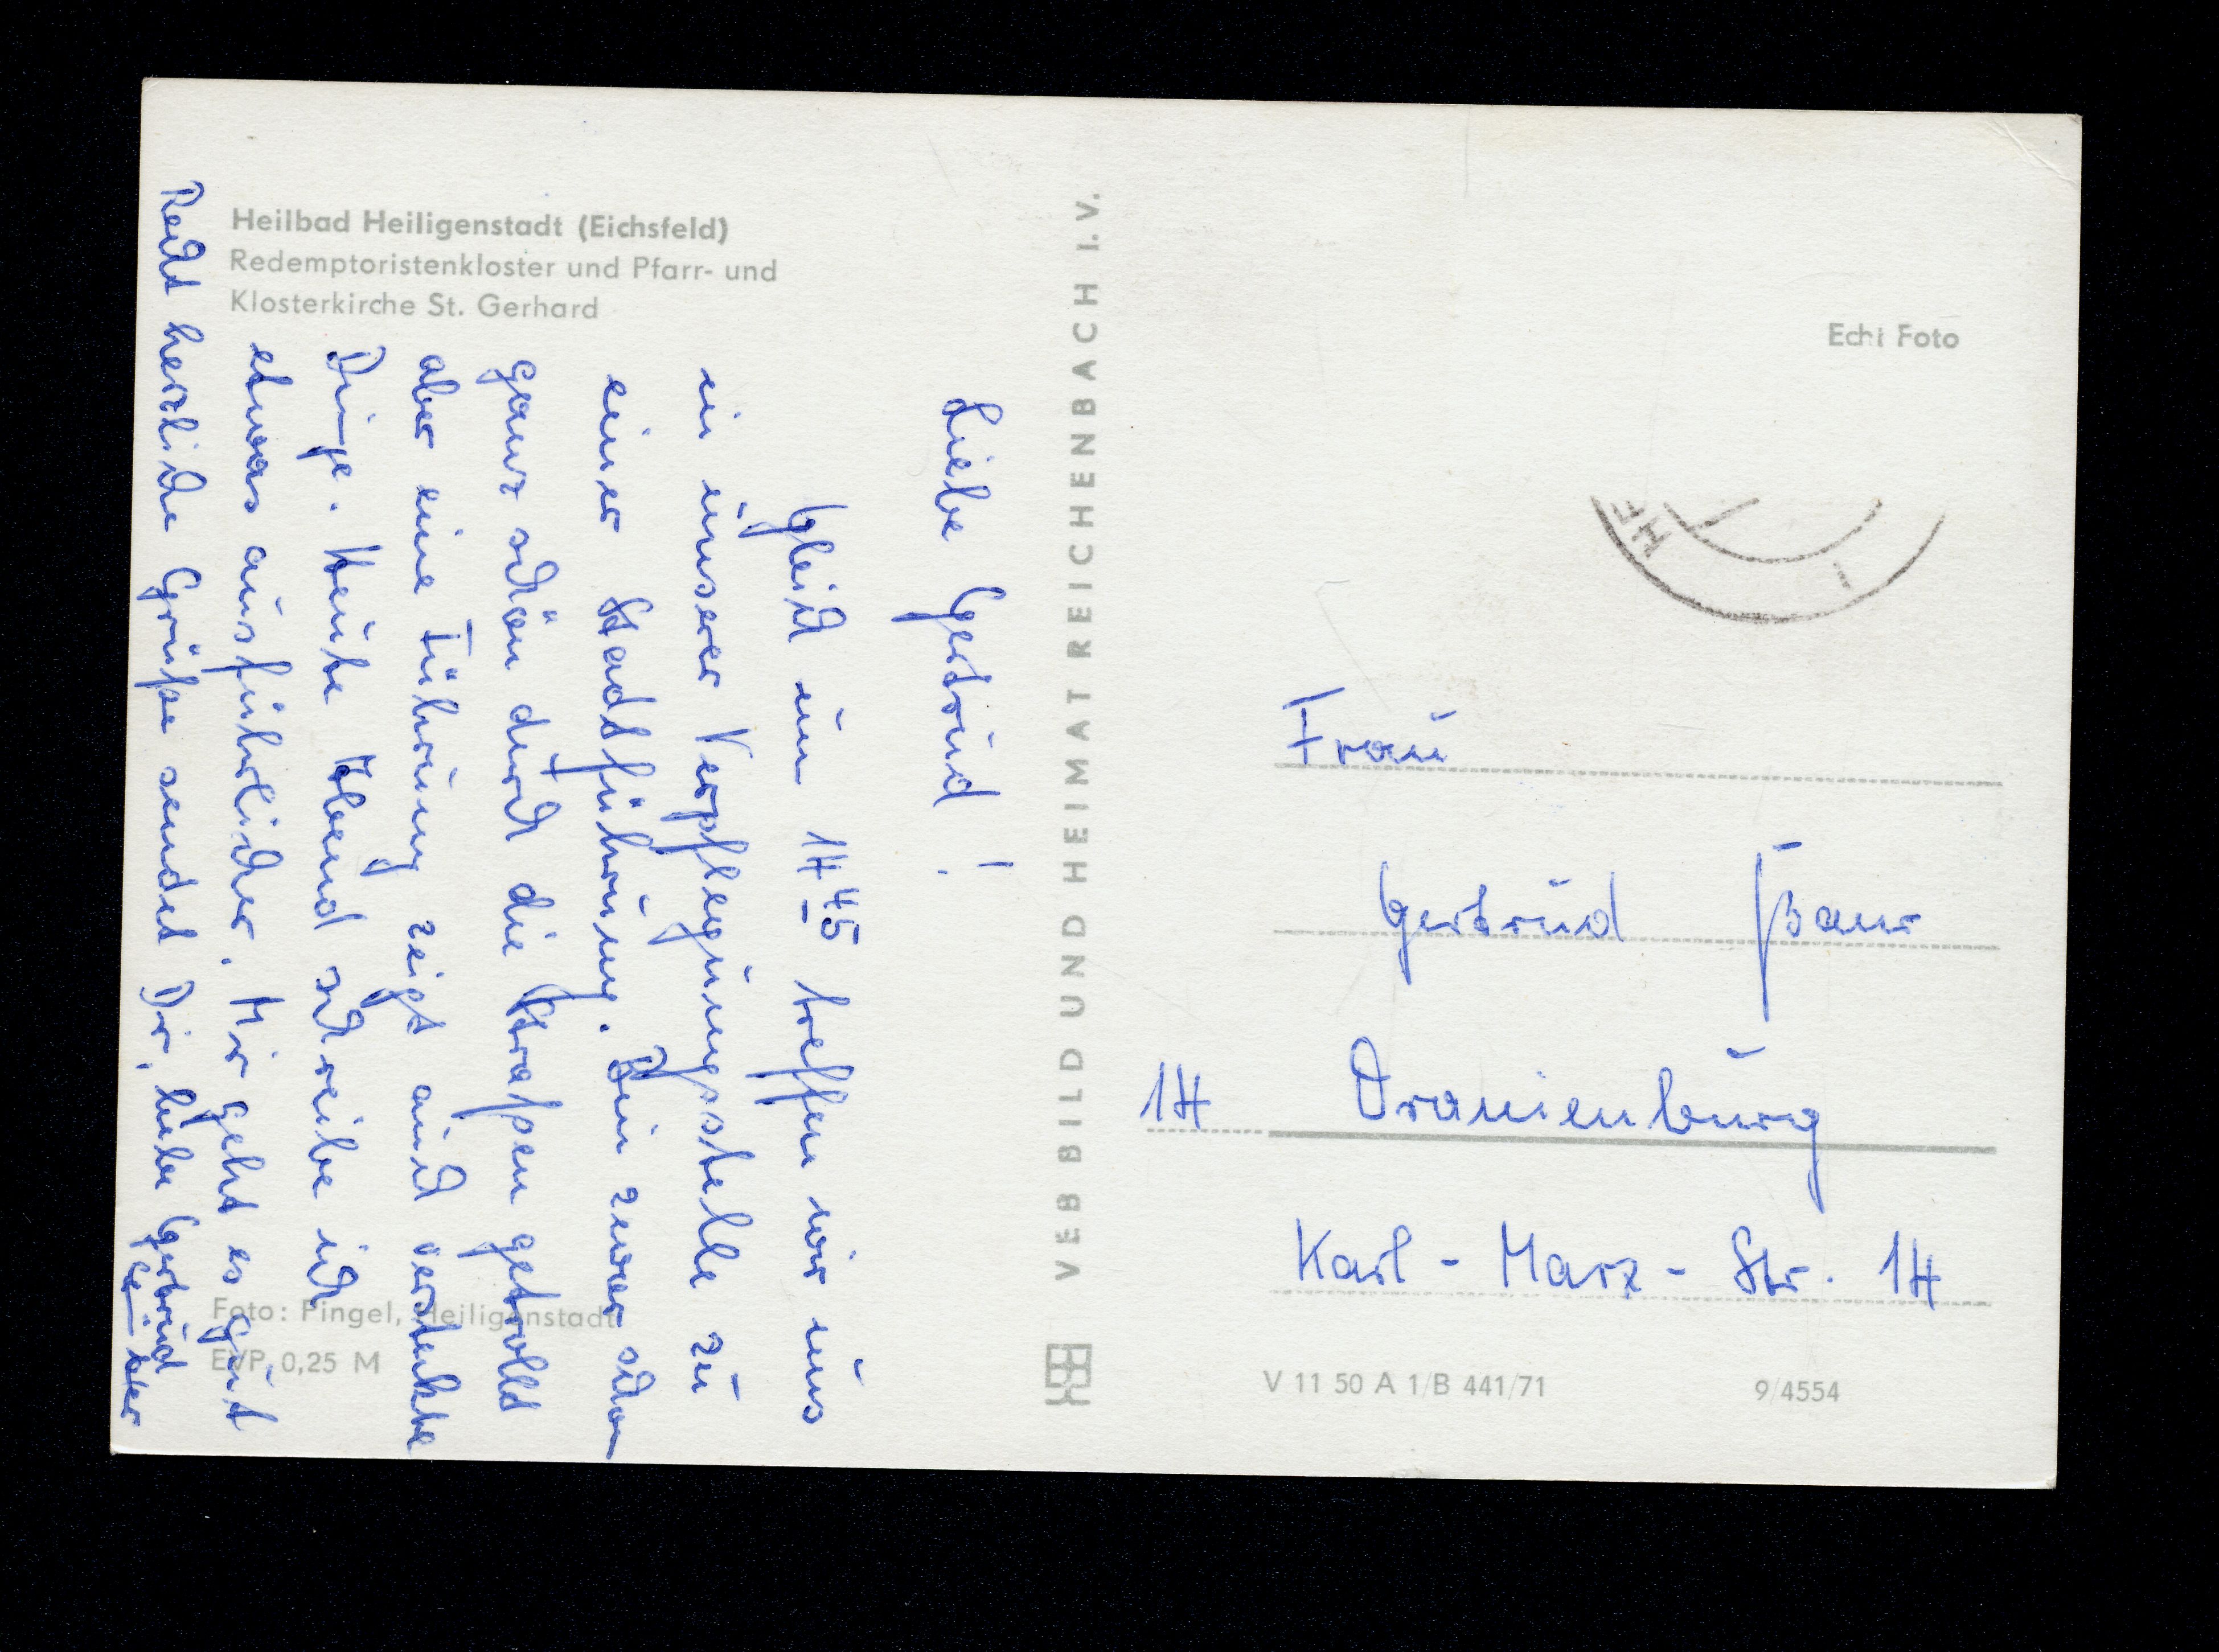 Heilbad Heiligenstadt (Eichsfeld)
Redemptoristenkloster und Pfarr- und
Klosterkirche St. Gerhard
Liebe Gertrud!
Gleich um 14 45 treffen wir uns
in unserer Verpflegungsstelle zu
einer Stadtführung. Bin zwar schon
ganz schön durch die Straßen getrollt
aber eine Führung zeigt auch versteckte
Dinge. Heute Abend schreibe ich
etwas ausführlicher. Mir geht es gut
Recht herzliche Grüße sendet Dir, liebe Gertrud
Foto: Pingel, Heiligenstadt
EVP 0,25 M
VEB BILD UND HEIMAT REICHENBACH I. V.
Echt Foto
Frau
Gertrud
14 Oranienburg
Karl-Marx-Str. 14
V 11 50 A 1/B 441/71
9/4554